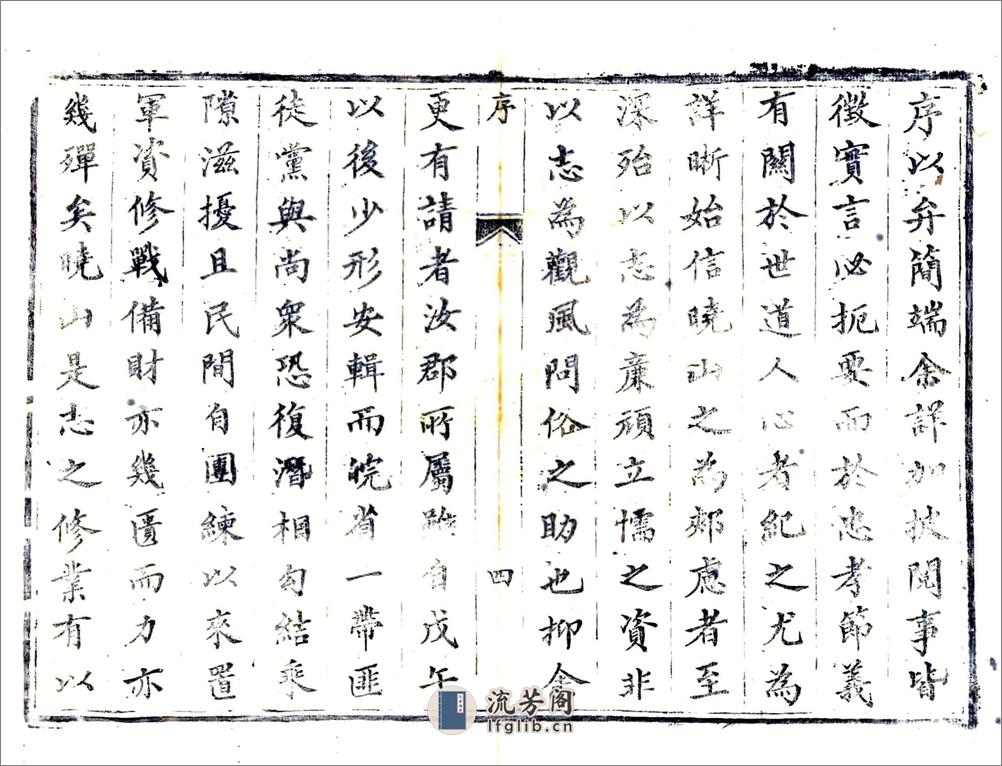 序以弁簡端余詳加披閱事皆
徵實言必扼要而於忠孝節義
有關於世道人心者紀之尤為
詳晰始信曉山之為郟慮者至
深殆以志為廉頑立懦之資非
以志為觀風問俗之助也抑余
序
四
更有請者汝郡所屬雖自戊午
以後少形安輯而皖省一帶匪
徒黨與尚衆恐復潛相勾結乘
隙滋擾且民間自團練以來置
軍資修戰備財亦幾匱而力亦
幾殫矣曉山是志之修業有以
流芳阁
lfglib.cn